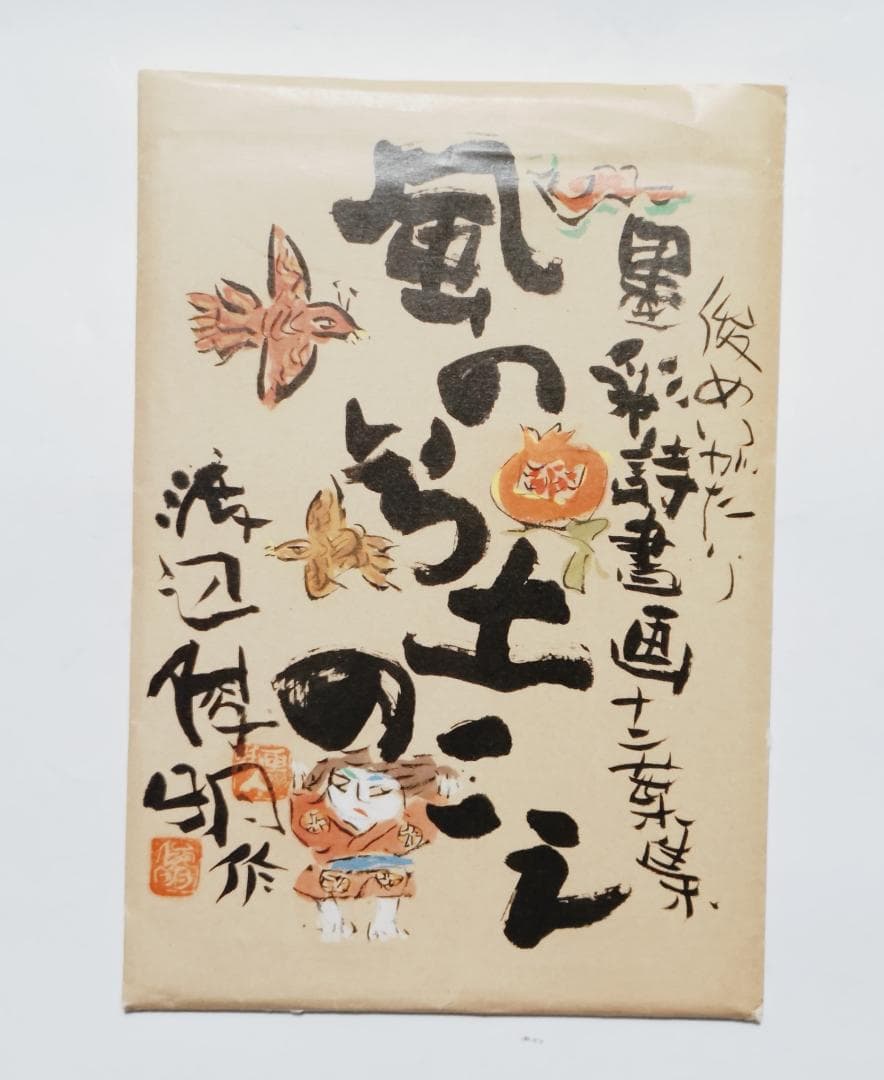 俊めいがたり
墨彩詩書画十二葉集
風の
土のこえ
渡辺俊明作